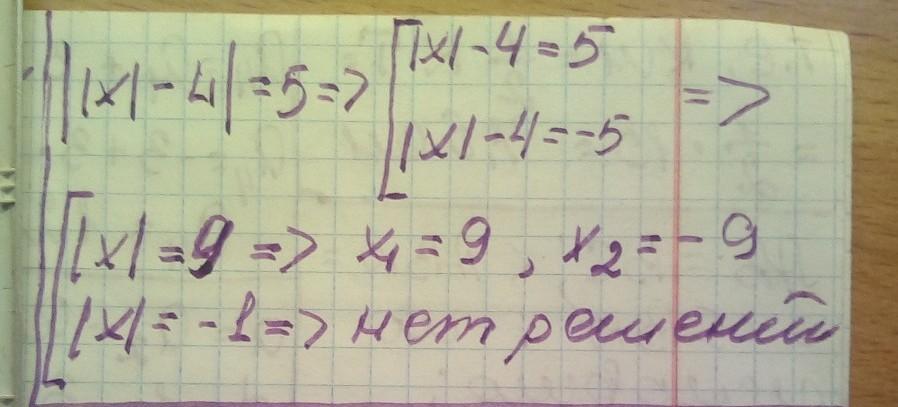 ||x| - 4| = 5 => [ |x| - 4 = 5
|x| - 4 = -5 =>
[ |x| = 9 => x₁ = 9 , x₂ = - 9
|x| = -1 => нет решений